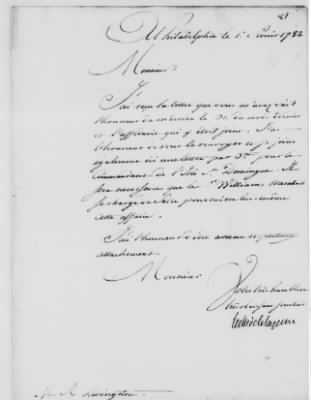 81
A Philadelphie le 1er fevrier 1782
Monsieur
J'ai reçu la lettre que vous m'avez fait
l'honneur de m'écrire le 31. du mois dernier
et l'affidavit qui y étoit joint. J'ai
l'honneur de vous le renvoyer et je joins
également ici une lettre pour le
Commandant de l'Isle St. Domingue. Il
sera necessaire que le Sr. William Marshall
se charge de faire poursuivre lui même
cette affaire.
J'ai l'honneur d'être avec un respectueux
attachement
Monsieur
Votre très humble et
très obéissant serviteur
le chr de la Luzerne
Mr. R. Livingston.